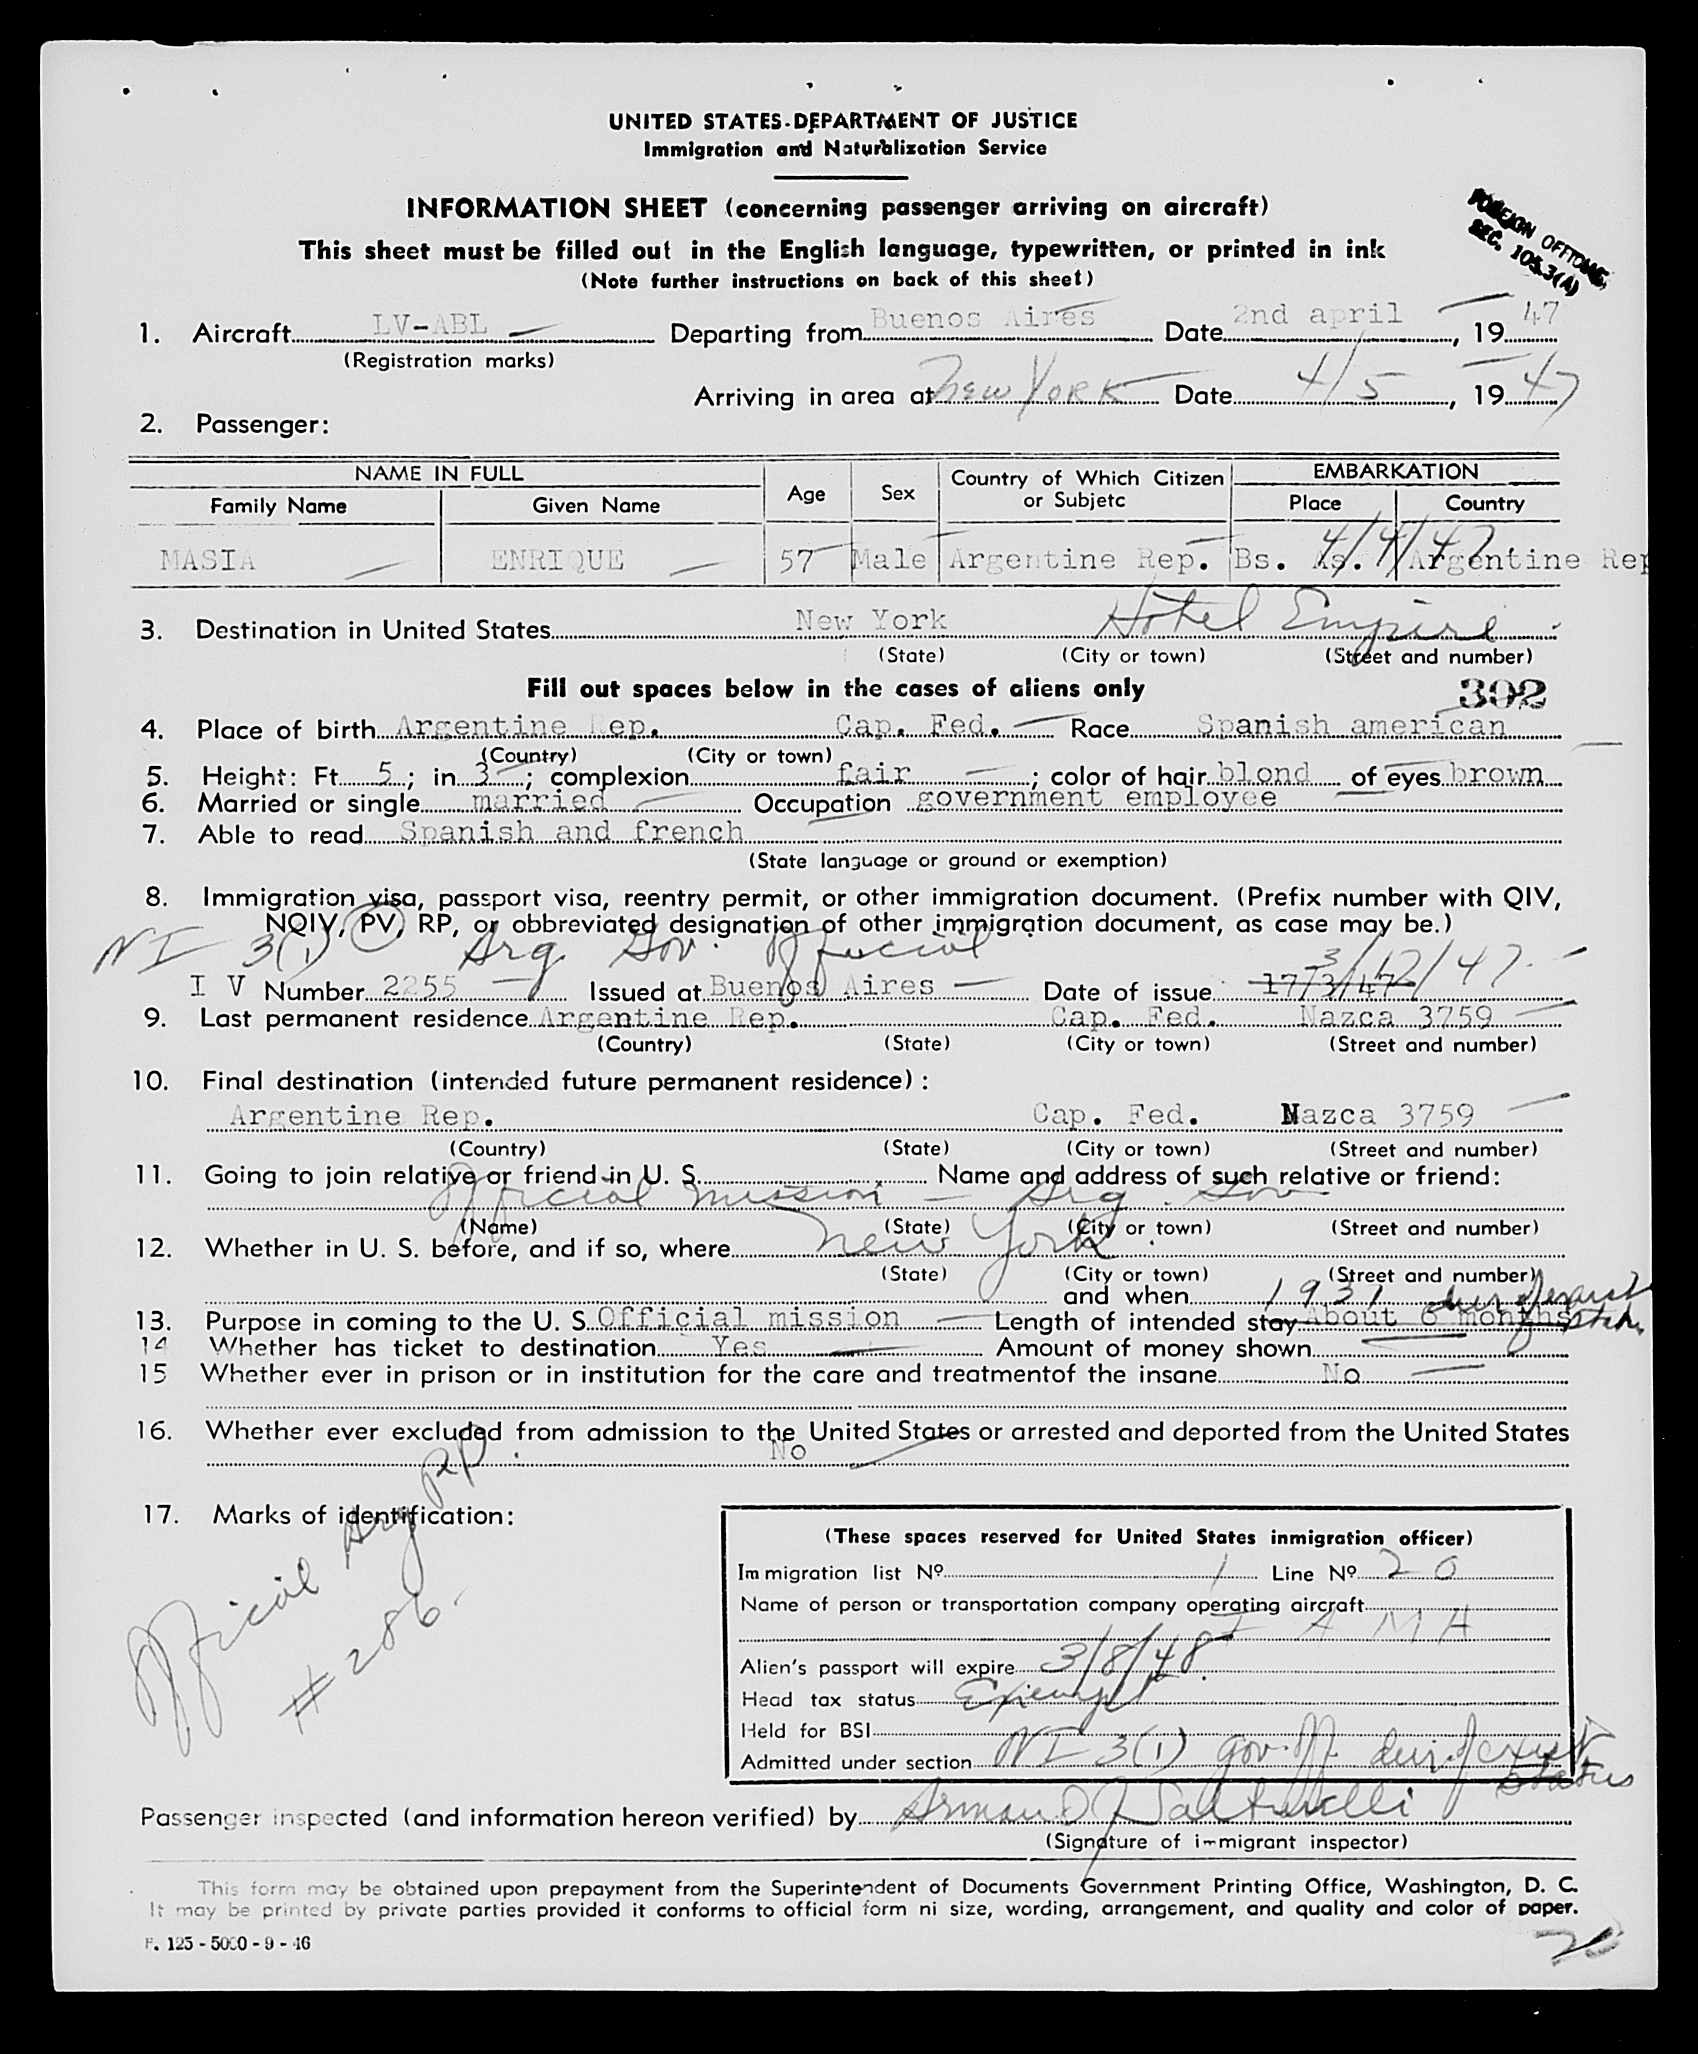 UNITED STATES-DEPARTMENT OF JUSTICE
Immigration and Naturalization Service
INFORMATION SHEET (concerning passenger arriving on aircraft)
This sheet must be filled out in the English language, typewritten, or printed in ink
(Note further instructions on back of this sheet)
FOREIGN OFFICIAL
SEC. 105.3(A)
1. Aircraft LV-ABL Departing from Buenos Aires Date 2nd april, 1947
(Registration marks)
Arriving in area at New York Date 4/5, 1947
2. Passenger:
NAME IN FULL Age Sex Country of Which Citizen or Subjetc EMBARKATION
Family Name Given Name Place Country
4/4/47
MASIA ENRIQUE 57 Male Argentine Rep. Bs. As. Argentine Rep
3. Destination in United States New York Hotel Empire
(State) (City or town) (Street and number)
Fill out spaces below in the cases of aliens only
392
4. Place of birth Argentine Rep. Cap. Fed. Race Spanish american
(Country) (City or town)
5. Height: Ft. 5; in. 3; complexion fair; color of hair blond of eyes brown
6. Married or single married Occupation government employee
7. Able to read Spanish and french
(State language or ground or exemption)
8. Immigration visa, passport visa, reentry permit, or other immigration document. (Prefix number with QIV,
NQIV, PV, RP, or obbreviated designation of other immigration document, as case may be.)
NI 3(1) Arg. Gov. Official 3/17/47
I V Number 2255 Issued at Buenos Aires Date of issue 17/3/47
9. Last permanent residence Argentine Rep. Cap. Fed. Nazca 3759
(Country) (State) (City or town) (Street and number)
10. Final destination (intended future permanent residence):
Argentine Rep. Cap. Fed. Nazca 3759
(Country) (State) (City or town) (Street and number)
11. Going to join relative or friend in U. S. Name and address of such relative or friend:
Official mission - Arg. Gov
(Name) (State) (City or town) (Street and number)
12. Whether in U. S. before, and if so, where New York
(State) (City or town) (Street and number)
and when 1931 dur of exist status
13. Purpose in coming to the U. S. Official mission Length of intended stay About 6 months
14 Whether has ticket to destination Yes Amount of money shown
15 Whether ever in prison or in institution for the care and treatmentof the insane No
16. Whether ever excluded from admission to the United States or arrested and deported from the United States
No
17. Marks of identification:
Official Arg PP
#286
(These spaces reserved for United States inmigration officer)
Immigration list Nº 1 Line Nº 20
Name of person or transportation company operating aircraft
F A M A
Alien's passport will expire 3/8/48
Head tax status Exempt
Held for BSI
Admitted under section NI 3(1) gov. off dur of exist status
Passenger inspected (and information hereon verified) by Arman
(Signature of immigrant inspector)
This form may be obtained upon prepayment from the Superintendent of Documents Government Printing Office, Washington, D. C.
It may be printed by private parties provided it conforms to official form ni size, wording, arrangement, and quality and color of paper.
F. 125 - 5000 - 9 - 46
20